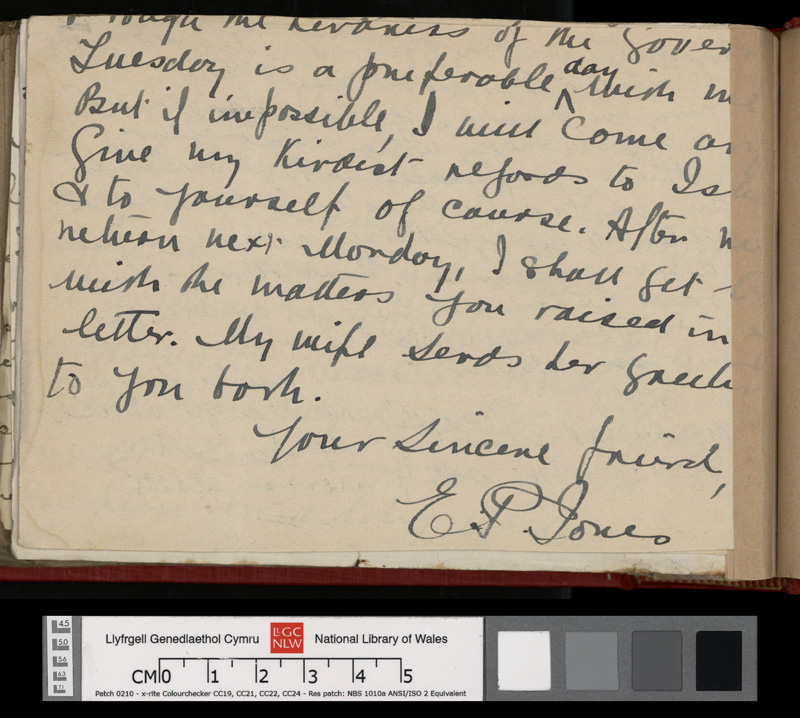 through the kindness of the Gover
Tuesday is a preferable day with me
But if impossible, I will come an
Give my kindest regards to Is
& to yourself of course. After m
return next Monday, I shall get
with the matters you raised in
letter. My wife sends her greet
to you both.
Your sincere friend,
E. P. Jones
Llyfrgell Genedlaethol Cymru
LLGC
NLW
National Library of Wales
4.5
5.0
5.6
6.3
7.1
CM 0 1 2 3 4 5
Patch 0210 - x-rite Colourchecker CC19, CC21, CC22, CC24 - Res patch: NBS 1010a ANSI/ISO 2 Equivalent